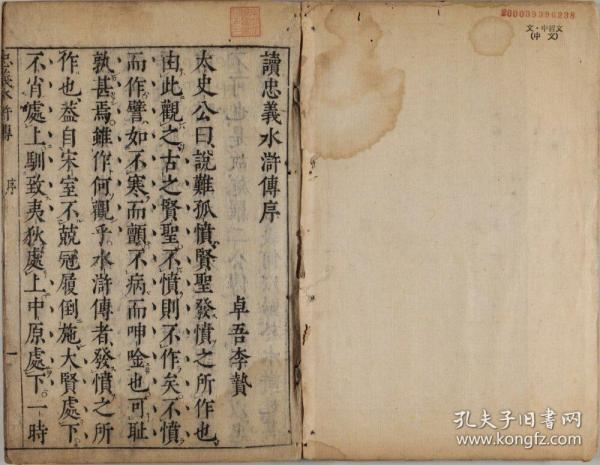 讀忠義水滸傳序
卓吾李贄
太史公曰說難孤憤賢聖發憤之所作也
由此觀之古之賢聖不憤則不作矣不憤
而作譬如不寒而顫不病而呻唫也可耻
孰甚焉雖作何觀乎水滸傳者發憤之所
作也葢自宋室不兢冠履倒施大賢處下
不肖處上馴致夷狄處上中原處下一時
序
一
200039396238
文・中習文
(中 文)
孔夫子旧书网
www.kongfz.com